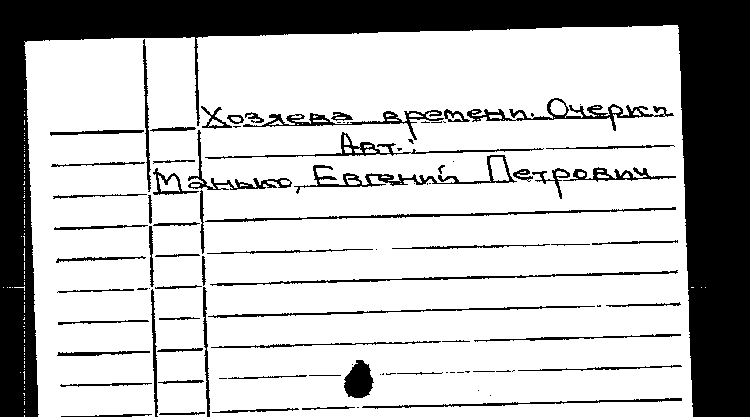 Хозяева времени. Очерки
Авт.:
Манько, Евгений Петрович